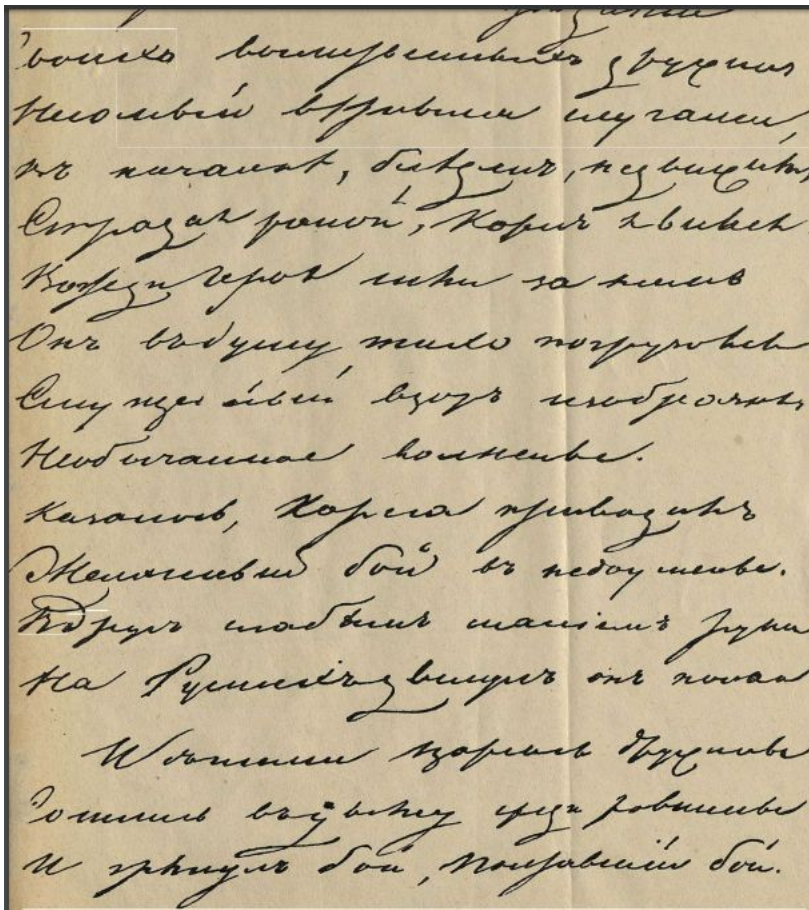 воихъ воинственныхъ дружинъ
Несомый вѣрными слугами,
въ качалкѣ, блѣденъ, недвижимъ,
Страдая раной, Карлъ явился
Вожди героя шли за нимъ
Онъ въ думу тихо погрузился
Смущенный взоръ изобразилъ
Необычайное волненье.
Казалось, Карла приводилъ
Желанный бой въ недоуменье.
Вдругъ слабымъ маніемъ руки
На Русскихъ двинулъ онъ полки
И съ ними царскіе дружины
ошлись въ дыму среди равнины
И грянулъ бой, Полтавскій бой.